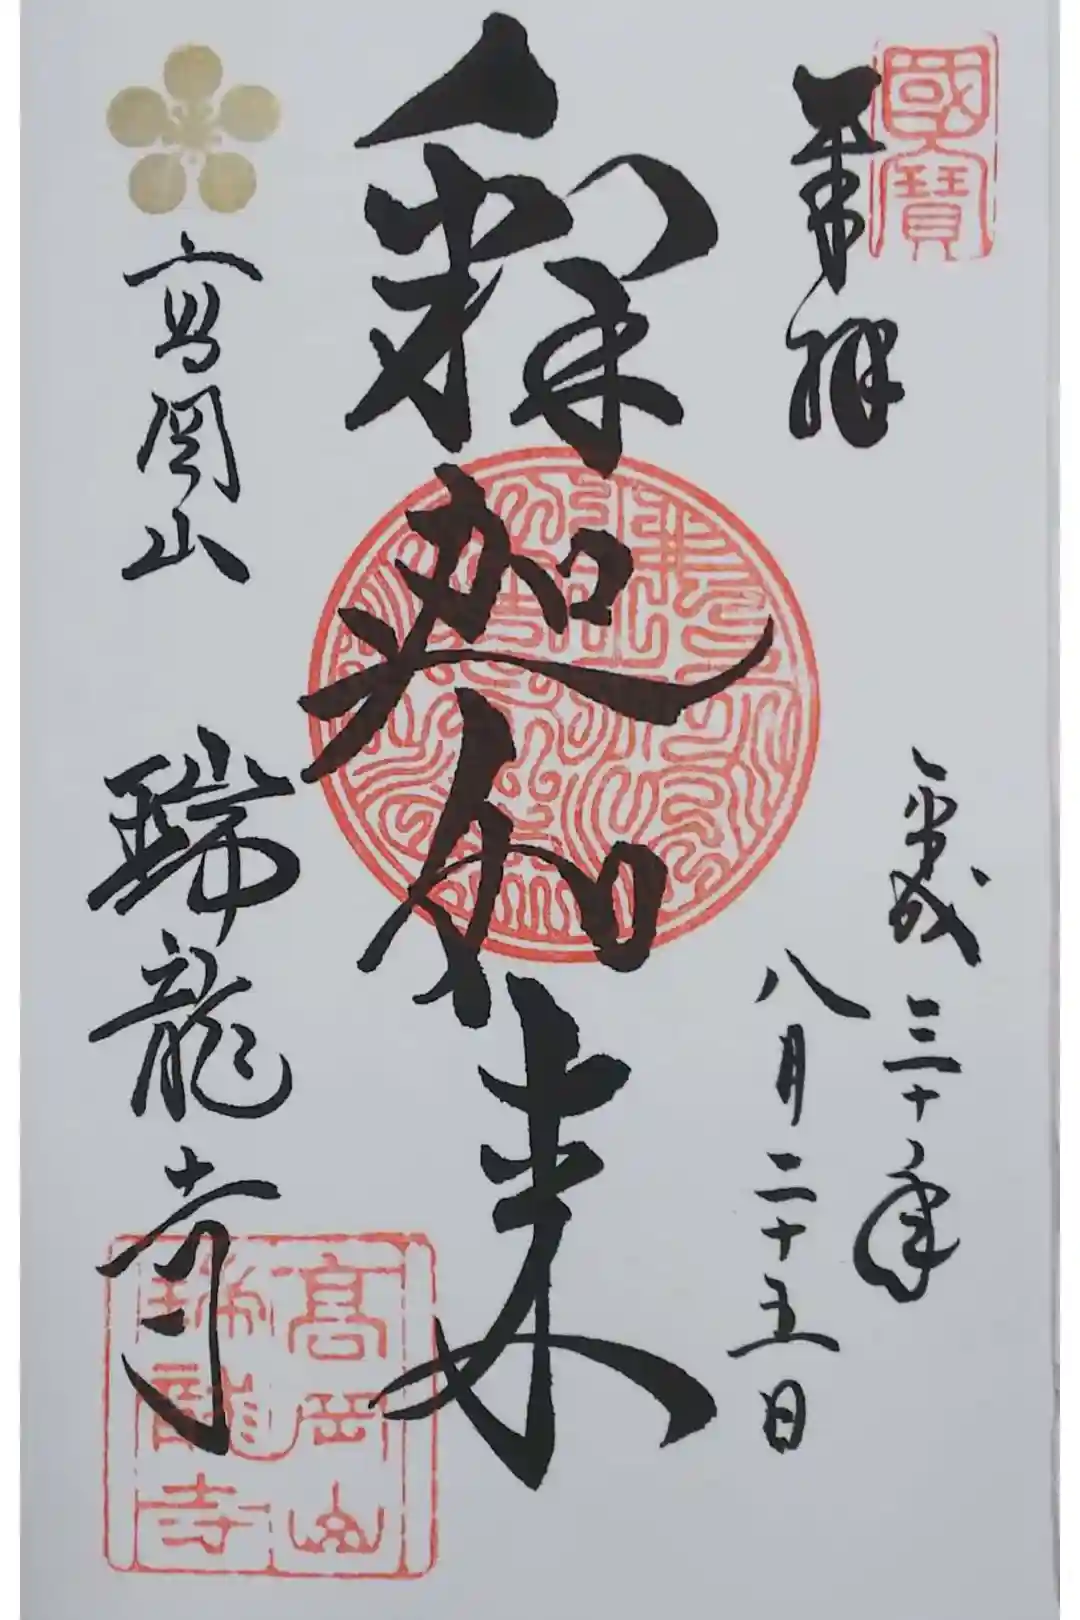 國寶
奉拝
平成三十年
八月二十五日
釈迦如来
高岡山
瑞龍寺
高岡山
瑞龍寺